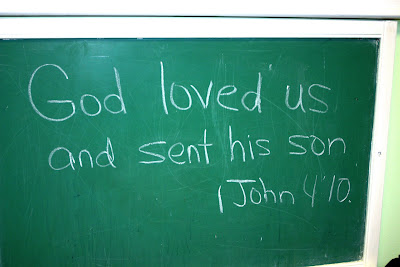 God loved us
and sent his son
1 John 4:10.